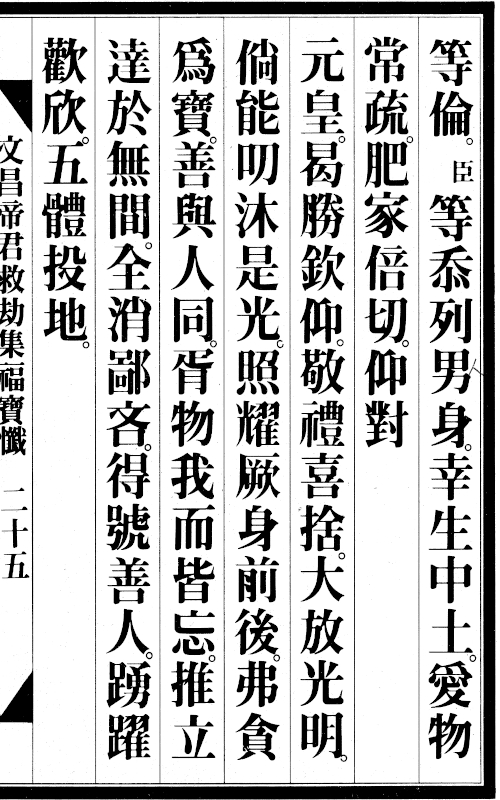 等倫。臣等忝列男身。幸生中土。愛物
常疏。肥家倍切。仰對
元皇。曷勝欽仰。敬禮喜捨。大放光明。
倘能叨沐是光。照耀厥身前後。弗貪
爲寶。善與人同。胥物我而皆忘。推立
達於無間。全消鄙吝。得號善人。踴躍
歡欣。五體投地。
文昌帝君救劫集福寶懺 二十五